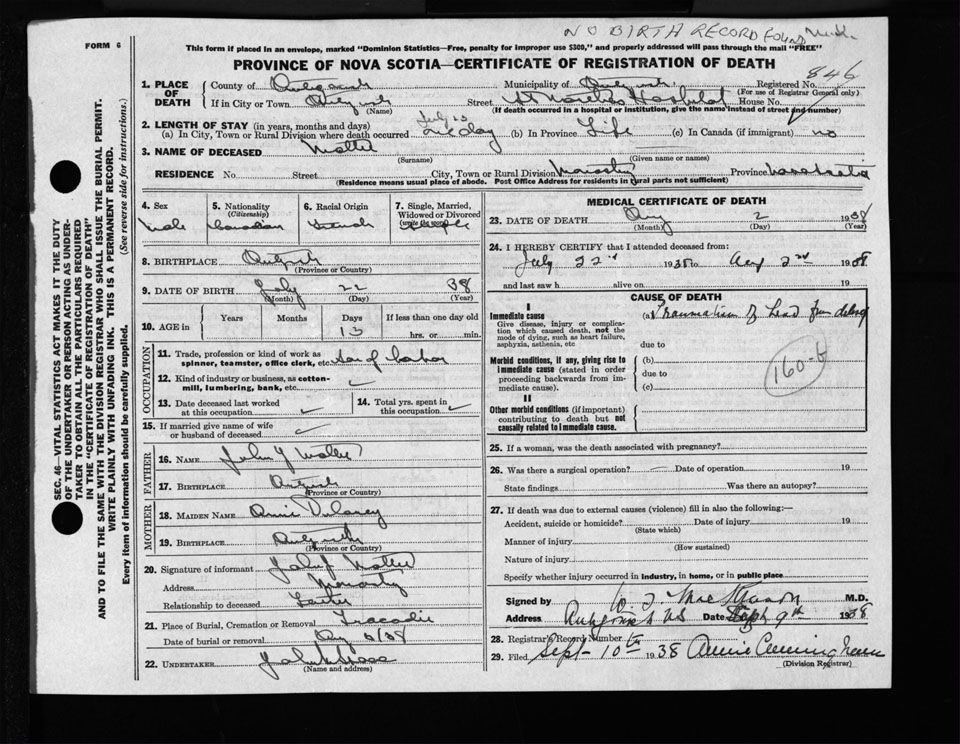 NO BIRTH RECORD FOUND
FORM 6
This form if placed in an envelope, marked "Dominion Statistics—Free, penalty for improper use $300," and properly addressed will pass through the mail "FREE"
PROVINCE OF NOVA SCOTIA—CERTIFICATE OF REGISTRATION OF DEATH
846
1. PLACE OF DEATH
County of Antigonish Municipality of Antigonish Registered No.
(For use of Registrar General only)
If in City or Town Antigonish Street St Martha's Hospital House No.
(Name) (If death occurred in a hospital or institution, give the name instead of street and number)
2. LENGTH OF STAY (in years, months and days)
(a) In City, Town or Rural Division where death occurred (b) In Province Life (c) In Canada (if immigrant) no
3. NAME OF DECEASED Mattie
(Surname) (Given name or names)
RESIDENCE No. Street City, Town or Rural Division Monastery Province Nova Scotia
(Residence means usual place of abode. Post Office Address for residents in rural parts not sufficient)
4. Sex
Male
5. Nationality
(Citizenship)
Canadian
6. Racial Origin
French
7. Single, Married, Widowed or Divorced
(write the word)
Single
8. BIRTHPLACE Antigonish
(Province or Country)
9. DATE OF BIRTH July 22 38
(Month) (Day) (Year)
10. AGE in
Years Months Days If less than one day old
13 hrs. or min.
OCCUPATION
11. Trade, profession or kind of work as spinner, teamster, office clerk, etc. Son of Labor
12. Kind of industry or business, as cotton-mill, lumbering, bank, etc.
13. Date deceased last worked at this occupation
14. Total yrs. spent in this occupation
15. If married give name of wife or husband of deceased
FATHER
16. NAME John J Mattie
17. BIRTHPLACE Antigonish
(Province or Country)
MOTHER
18. MAIDEN NAME Annie Delorey
19. BIRTHPLACE Antigonish
(Province or Country)
20. Signature of informant John J Mattie
Address Monastery
Relationship to deceased Father
21. Place of Burial, Cremation or Removal Tracadie
Date of burial or removal
22. UNDERTAKER
(Name and address)
MEDICAL CERTIFICATE OF DEATH
23. DATE OF DEATH Aug 2 1938
(Month) (Day) (Year)
24. I HEREBY CERTIFY that I attended deceased from:
July 22nd 1938 to Aug 2nd 1938
and last saw h alive on 19
CAUSE OF DEATH
I
Immediate cause
Give disease, injury or complication which caused death, not the mode of dying, such as heart failure, asphyxia, asthenia, etc
(a) Traumatism of head from delivery
due to
Morbid conditions, if any, giving rise to immediate cause (stated in order proceeding backwards from immediate cause).
(b)
due to
(c)
160-b
II
Other morbid conditions (if important) contributing to death but not causally related to immediate cause.
25. If a woman, was the death associated with pregnancy?
26. Was there a surgical operation? Date of operation 19
State findings Was there an autopsy?
27. If death was due to external causes (violence) fill in also the following:—
Accident, suicide or homicide? Date of injury 19
(State which)
Manner of injury
(How sustained)
Nature of injury
Specify whether injury occurred in industry, in home, or in public place
Signed by M.D.
Address Antigonish N.S Date Sept 9th 1938
28. Registrar's Record Number
29. Filed Sept - 10th 1938 Annie Cunningham
(Division Registrar)
SEC. 46—VITAL STATISTICS ACT MAKES IT THE DUTY
OF THE UNDERTAKER OR PERSON ACTING AS UNDERTAKER TO OBTAIN ALL THE PARTICULARS REQUIRED
IN THE "CERTIFICATE OF REGISTRATION OF DEATH"
AND TO FILE THE SAME WITH THE DIVISION REGISTRAR WHO SHALL ISSUE THE BURIAL PERMIT.
WRITE PLAINLY WITH UNFADING INK. THIS IS A PERMANENT RECORD.
Every item of information should be carefully supplied. (See reverse side for instructions.)